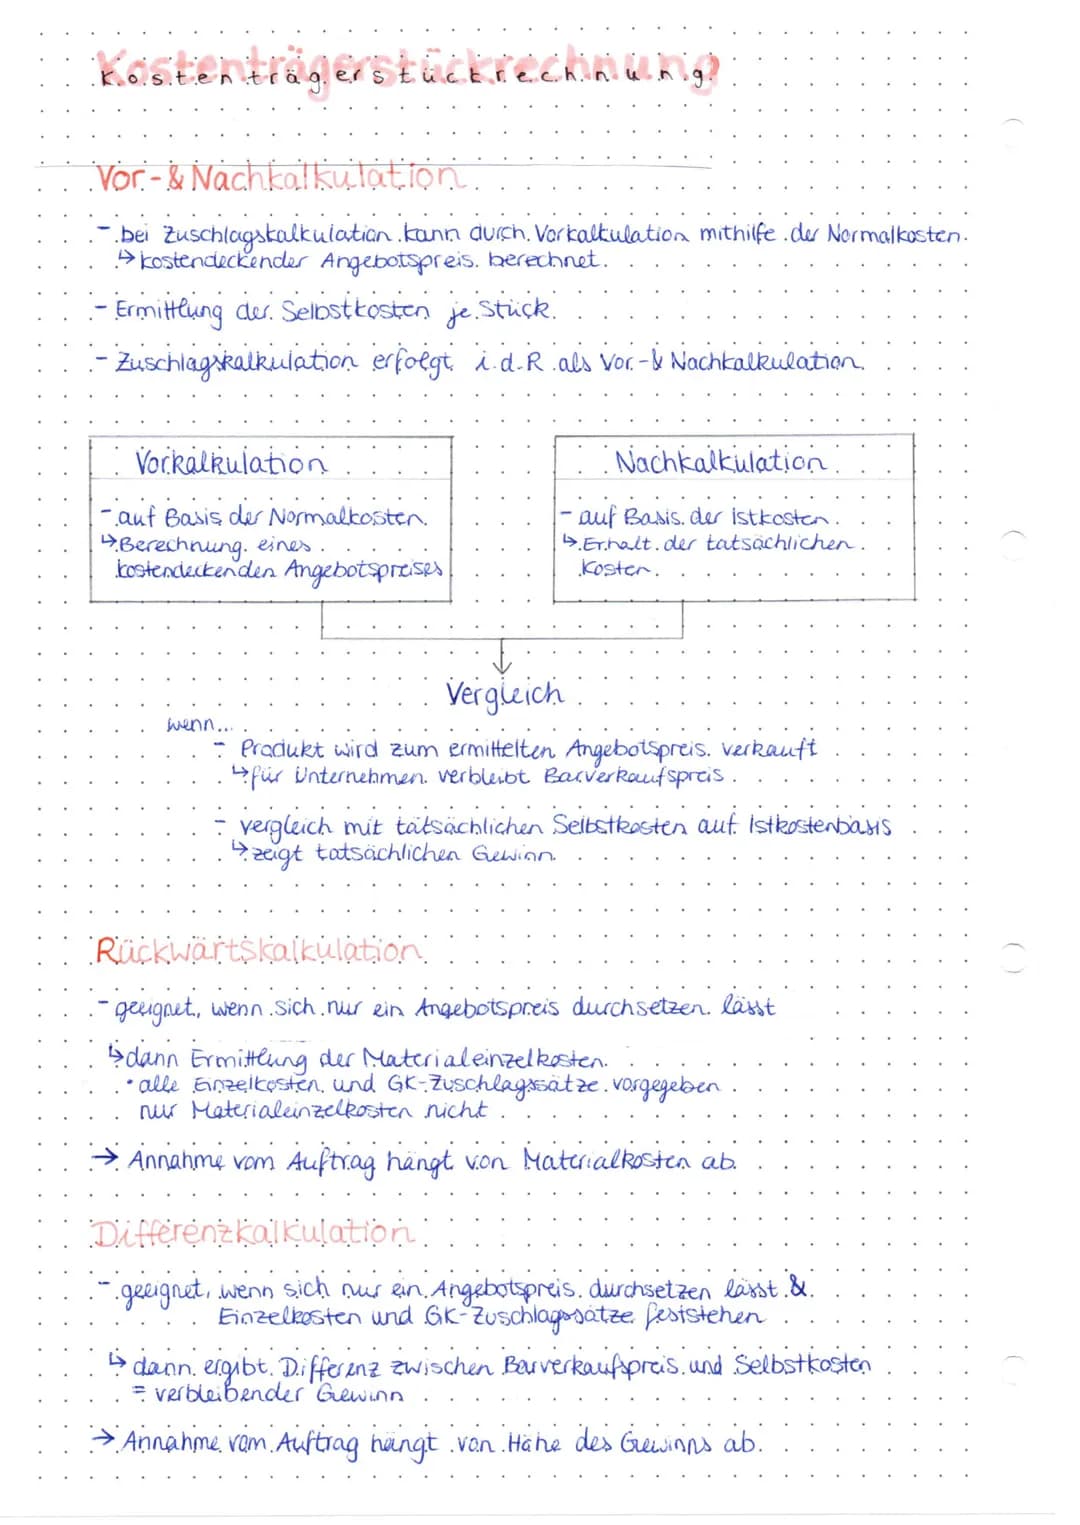 Kostenträgerstückrechnung
Vor- & Nachkalkulation
- bei Zuschlagskalkulation kann durch Vorkalkulation mithilfe der Normalkosten
↳ kostendeckender Angebotspreis berechnet.
- Ermittlung der Selbstkosten je Stück
- Zuschlagskalkulation erfolgt i.d.R. als Vor- & Nachkalkulation
Vorkalkulation
- auf Basis der Normalkosten
↳ Berechnung eines
kostendeckenden Angebotspreises
Nachkalkulation
- auf Basis der istkosten
↳ Erhalt der tatsächlichen
Kosten
Vergleich
wenn...
- Produkt wird zum ermittelten Angebotspreis verkauft
↳ für Unternehmen verbleibt Barverkaufspreis
- vergleich mit tatsächlichen Selbstkosten auf Istkostenbasis
↳ zeigt tatsächlichen Gewinn
Rückwärtskalkulation
- geeignet, wenn sich nur ein Angebotspreis durchsetzen lässt
↳ dann Ermittlung der Materialeinzelkosten
• alle Einzelkosten und GK-Zuschlagssätze vorgegeben
nur Materialeinzelkosten nicht
→ Annahme vom Auftrag hängt von Materialkosten ab
Differenzkalkulation
- geeignet, wenn sich nur ein Angebotspreis durchsetzen lässt &
Einzelkosten und GK-Zuschlagssätze feststehen
↳ dann ergibt Differenz zwischen Barverkaufspreis und Selbstkosten
= verbleibender Gewinn
→ Annahme vom Auftrag hängt von Höhe des Gewinns ab.